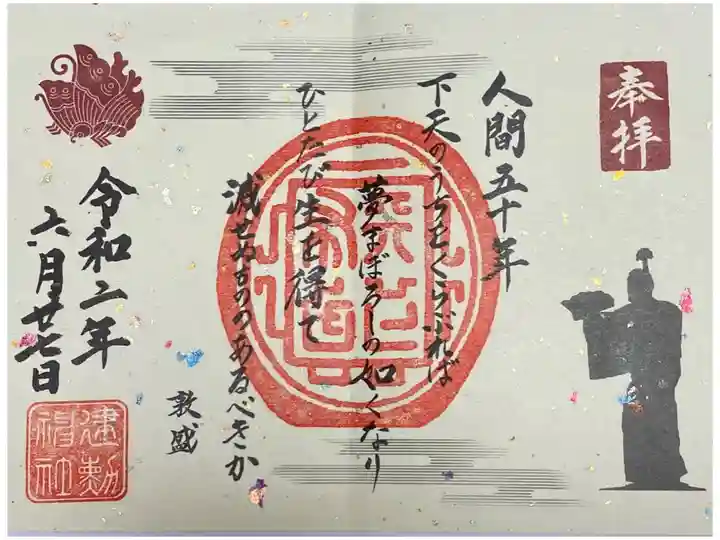 奉拝
人間五十年
下天のうちをくらぶれば
夢まぼろしの如くなり
ひとたび生を得て
滅せぬもののあるべきか
敦盛
令和二年
六月廿七日
建勲神社